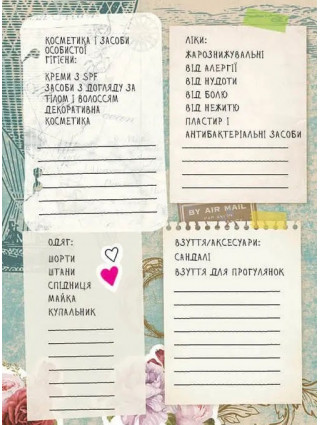 КОСМЕТИКА І ЗАСОБИ
ОСОБИСТОЇ
ГІГІЄНИ:
КРЕМИ З SPF
ЗАСОБИ З ДОГЛЯДУ ЗА
ТІЛОМ І ВОЛОССЯМ
ДЕКОРАТИВНА
КОСМЕТИКА
ЛІКИ:
ЖАРОЗНИЖУВАЛЬНІ
ВІД АЛЕРГІЇ
ВІД НУДОТИ
ВІД БОЛЮ
ВІД НЕЖИТЮ
ПЛАСТИР І
АНТИБАКТЕРІАЛЬНІ ЗАСОБИ
BY AIR MAIL
PAR AVION
ОДЯГ:
ШОРТИ
ШТАНИ
СПІДНИЦЯ
МАЙКА
КУПАЛЬНИК
ВЗУТТЯ/АКСЕСУАРИ:
САНДАЛІ
ВЗУТТЯ ДЛЯ ПРОГУЛЯНОК